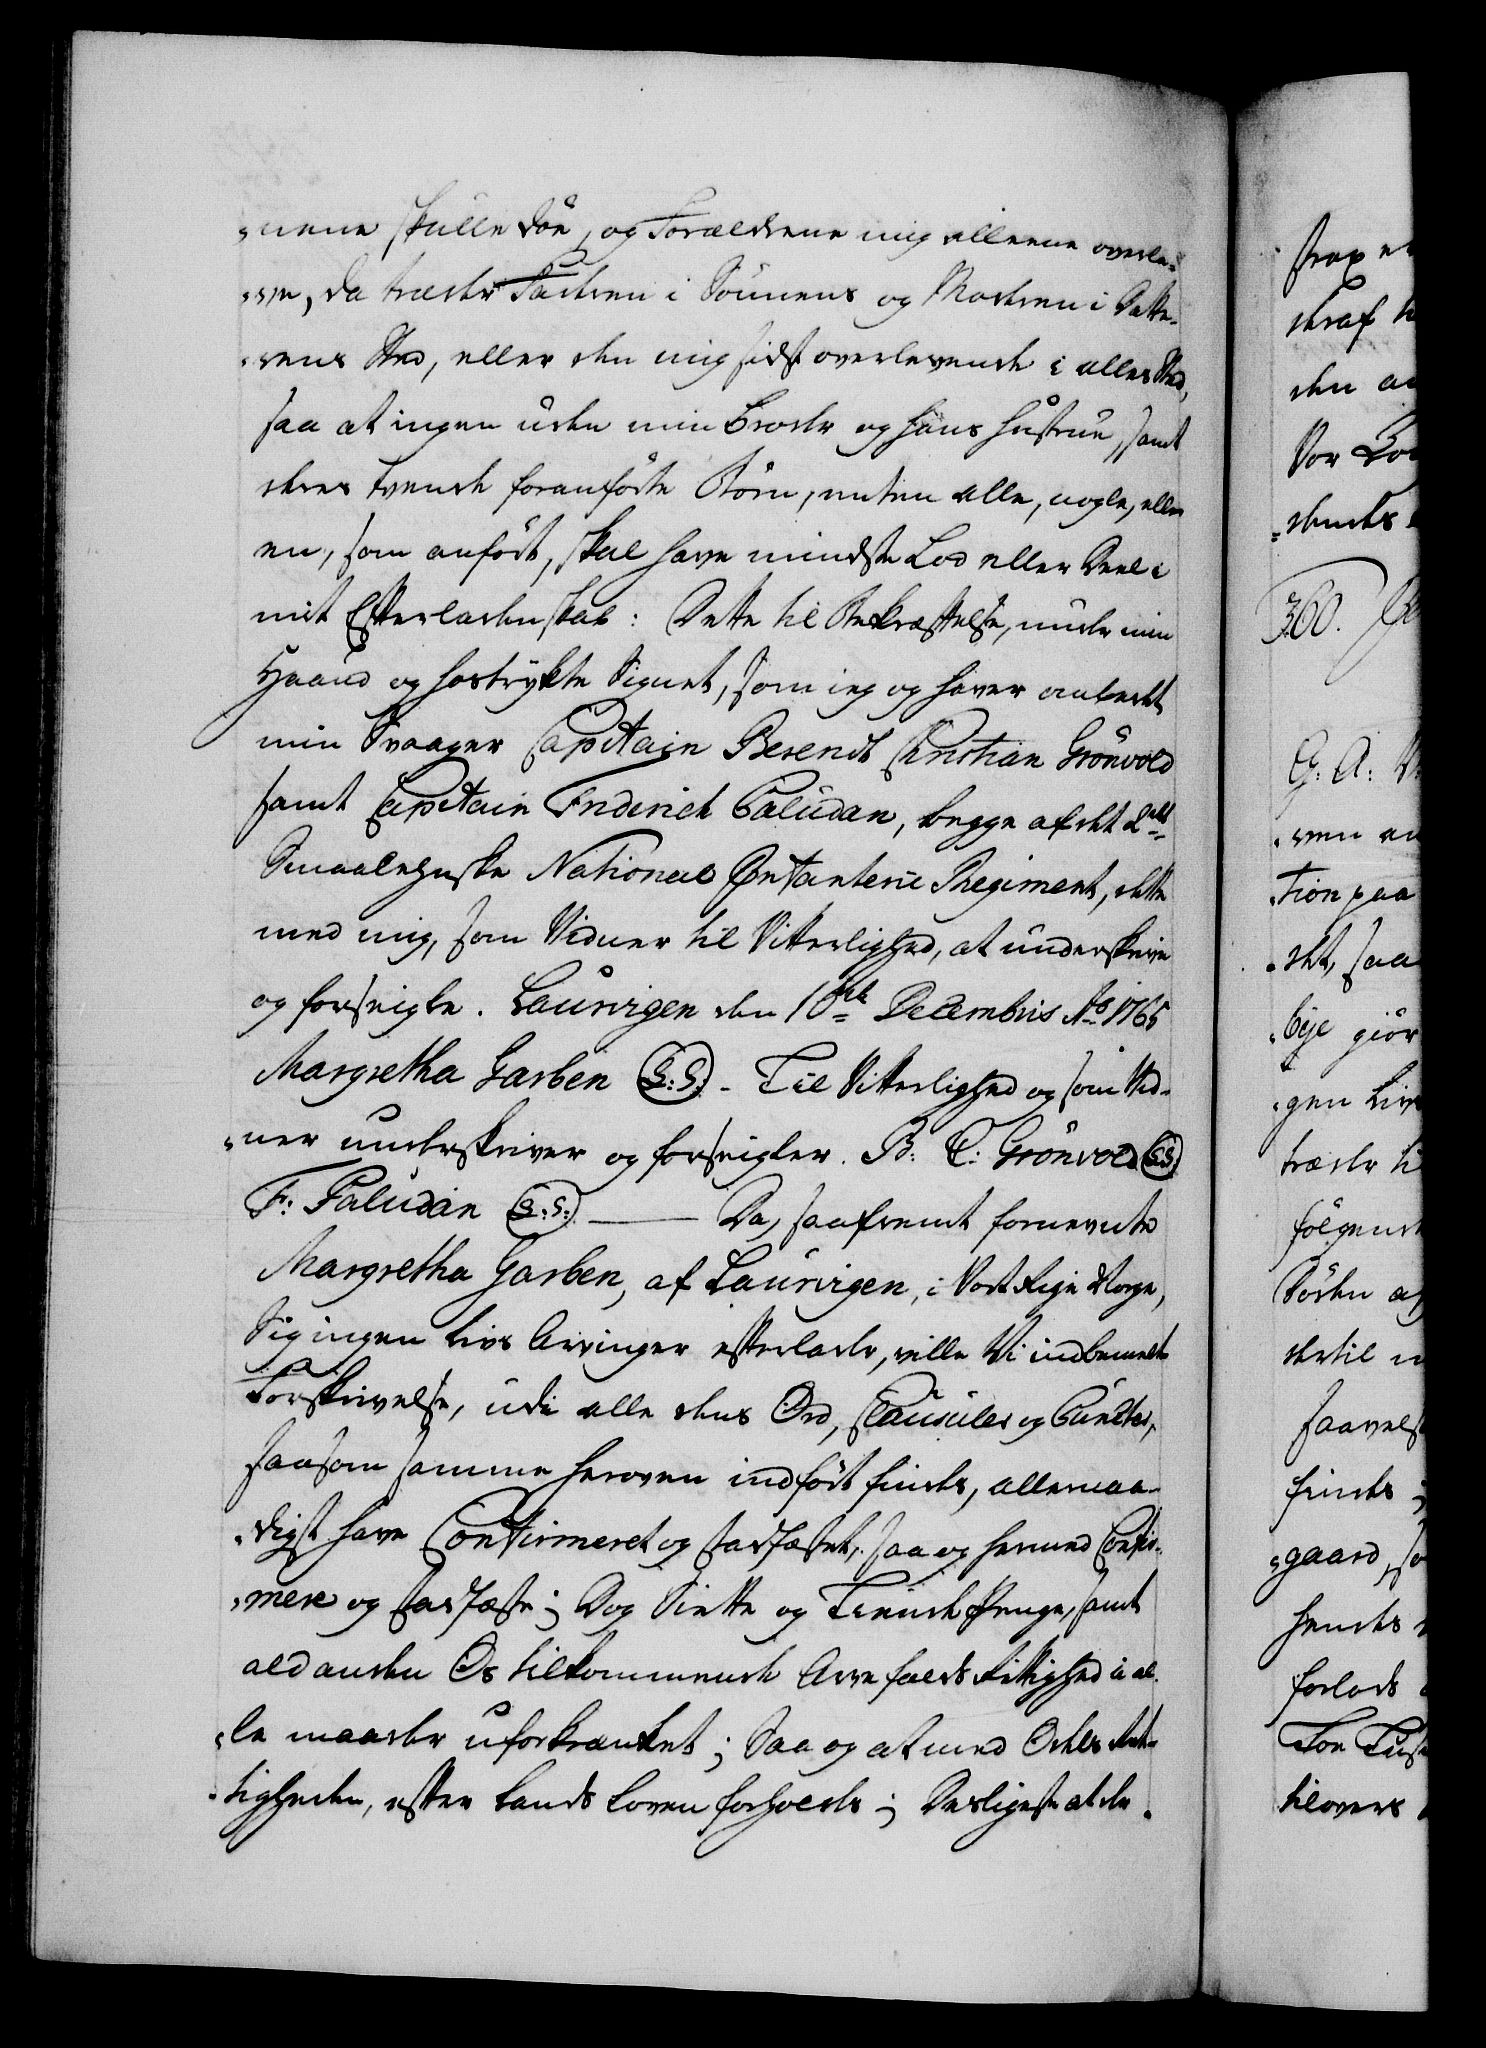 "nene skulle döe, og Forældrene mig alleene overle-
"ve, da træder Fadren i Sönnens og Modren i Datte-
"rens Sted, eller den mig sidst overlevende i alles Sted,
saa at ingen uden min Broder og hans Hustrue, samt
deres tvende foranförte Börn, enten alle, nogle, eller
en, som anfört, skal have mindste Lod eller Deel i
mit Efterladenskab: Dette til Bekræftelse, under min
Haand og hostrykte Signet, som ieg og haver ombedet
min Svoger Capitain Berendt Christian Grönvold
samt Capitain Friderich Paludan, begge af det 2det
Smaalehnske National Infanterie Regiment, dette
med mig, som Vidner til Vitterlighed, at underskrive
og forseigle. Laurvigen den 10de Decembris Ao 1765
Margretha Garben (L:S:) - Til Vitterlighed og som Vid-
"ner underskriver og forseigler. B: C: Grönvold (L:S:)
F: Paludan (L:S:) — Da, saafremt fornevnte
Margretha Garben, af Laurvigen, i Vort Rige Norge,
Sig ingen Livs Arvinger efterlader, ville Vi indbemelte
Forskrivelse, udi alle dens Ord, Clausuler og Puncter,
saasom samme heroven indfört findes, allernaa-
"digst have Confirmeret og stadfæstet, saa og hermed Confir-
"mere og stadfæste; Dog Siette og Tiende Penge, samt
ald anden Os tilkommende Arvefalds Rettighed i al-
"le maader uforkrænket; Saa og at med Odels Ret-
"tigheden, efter Lands Loven forholdes; Desligeste at de
straf h
den a
Vor
360.
G: A:
"ven
"tion paa
"det, saa
"lige giör
"gen Livs
træder ti
fölgende
Södsken
dertil
saavels
findes
"gaard, s
hendes
forlods
tilovers